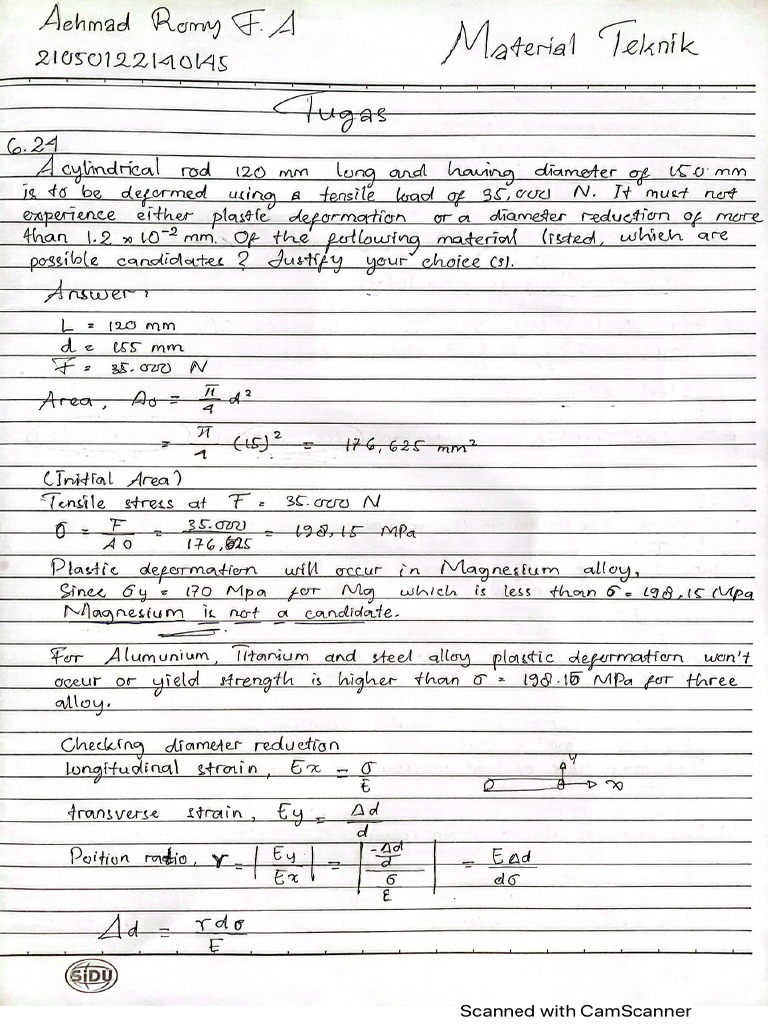 Achmad Romy F. A
21050122140145
Material Teknik
Tugas
6.24
A cylindrical rod 120 mm long and having diameter of 15.0 mm
is to be deformed using a tensile load of 35,000 N. It must not
experience either plastic deformation or a diameter reduction of more
than 1.2 x 10⁻² mm. Of the following material listed, which are
possible candidates? Justify your choice (s).
Answer:
L = 120 mm
d = 155 mm
F = 35.000 N
Area, Ao = π/4 d²
= π/4 (15)² = 176,625 mm²
(Initial Area)
Tensile stress at F = 35.000 N
σ = F/AO = 35.000/176,625 = 198,15 MPa
Plastic deformation will occur in Magnesium alloy,
Since σy = 170 Mpa for Mg which is less than σ = 198,15 Mpa
Magnesium is not a candidate.
For Alumunium, Titanium and steel alloy plastic deformation won't
occur or yield strength is higher than σ = 198.15 MPa for three
alloy.
Checking diameter reduction
longitudinal strain, Ex = σ/E
y
x
transverse strain, Ey = Δd/d
Poition ratio, r = |Ey/Ex| = |(-Δd/d)/(σ/E)| = EΔd/dσ
Δd = rdσ/E
SiDU
Scanned with CamScanner